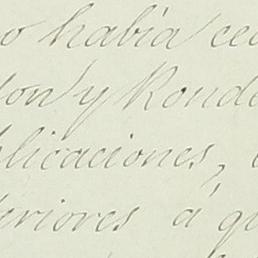 o había ce
on y Ronde
licaciones,
eriores á qu